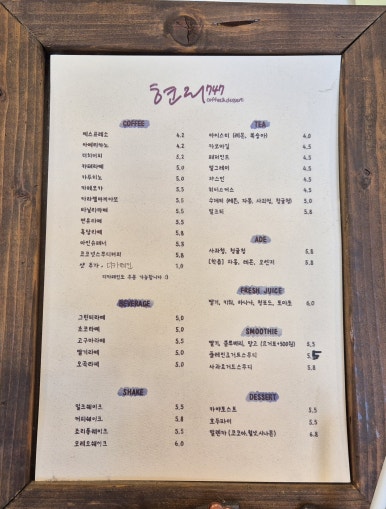 현리747
coffee&dessert
COFFEE
에스프레소 4.2
아메리카노 4.2
더치커피 5.2
카페라떼 5.0
카푸치노 5.0
카페모카 5.5
카라멜마끼아또 5.5
바닐라라떼 5.5
연유라떼 5.5
흑당라떼 5.8
아인슈페너 5.8
코코넛스무디커피 5.8
샷 추가 · 디카페인 1.0
디카페인도 주문 가능합니다 :)
BEVERAGE
그린티라떼 5.0
초코라떼 5.0
고구마라떼 5.5
딸기라떼 5.0
오곡라떼 5.0
SHAKE
밀크쉐이크 5.5
커피쉐이크 5.8
초리퐁쉐이크 5.5
오레오쉐이크 6.0
TEA
아이스티 (레몬, 복숭아) 4.0
카모마일 4.5
페퍼민트 4.5
얼그레이 4.5
자스민 4.5
히비스커스 4.5
수제차 (레몬, 자몽, 사과청, 청귤청) 5.0
밀크티 5.8
ADE
사과청, 청귤청 5.8
(착즙) 자몽, 레몬, 오렌지 5.8
FRESH JUICE
딸기, 키위, 바나나, 청포도, 토마토 6.0
SMOOTHIE
딸기, 블루베리, 망고 (요거트+500원) 5.5
플레인요거트스무디 5.5
사과요거트스무디 5.8
DESSERT
카야토스트 5.5
호두파이 5.5
팥앤빠 (코코아,월넛,시나몬) 6.8